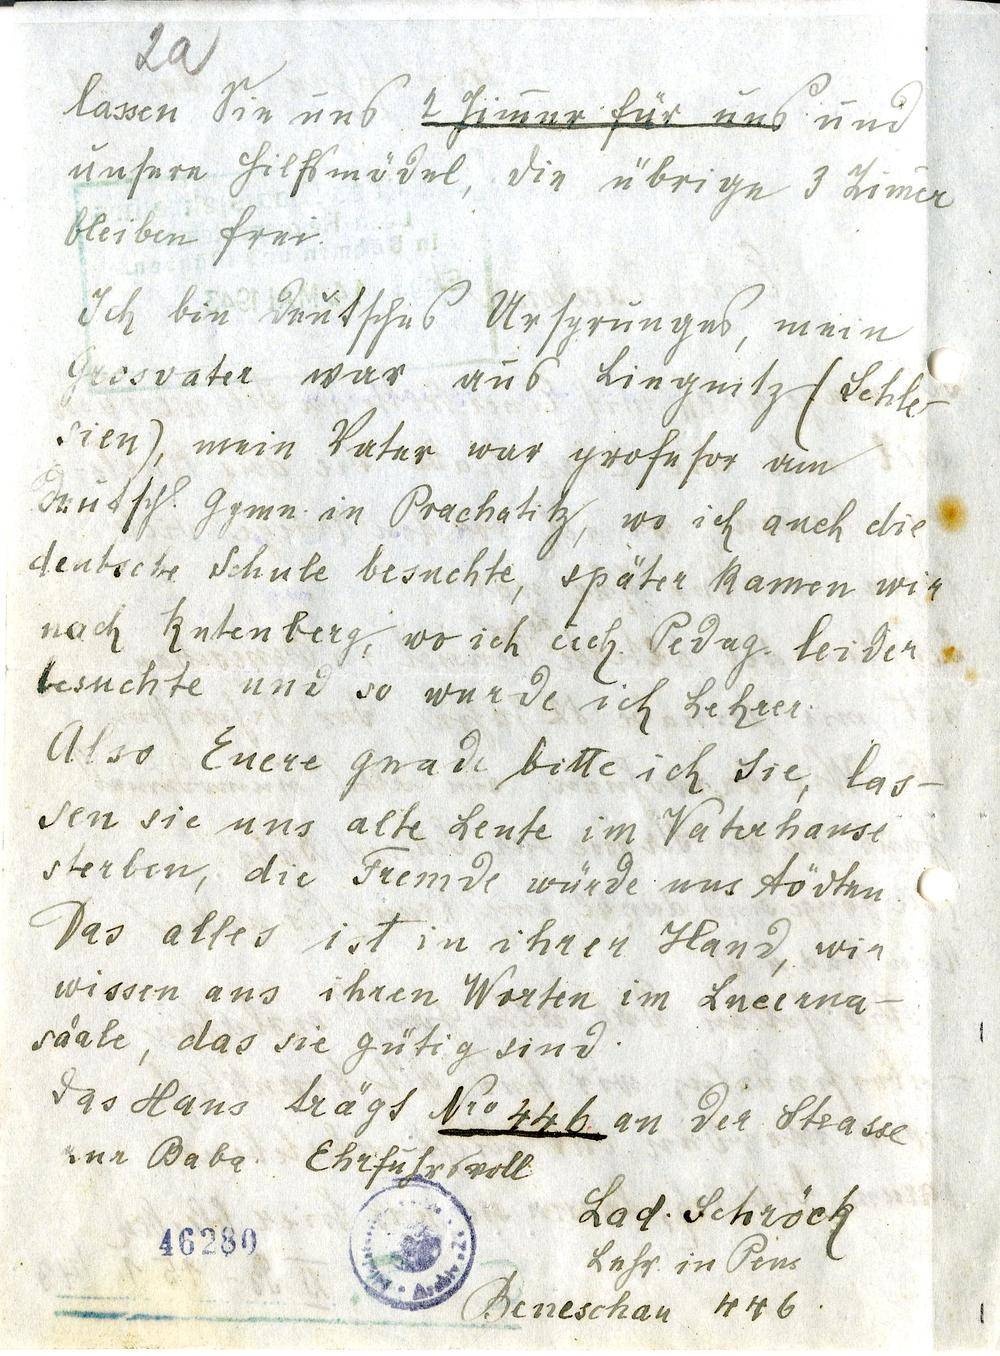 2a
lassen Sie uns 2 Zimmer für uns und
unsere Hilfsmädel, die übrige 3 Zimer
bleiben frei.
Ich bin deutsches Ursprunges, mein
Grosvater war aus Liegnitz (Schle-
sien), mein Vater war profesor am
deutsch. Gymn. in Prachatitz, wo ich auch die
deutsche Schule besuchte, später kamen wir
nach Kutenberg, wo ich čech. Pedag. leider
besuchte und so wurde ich Lehrer.
Also Euere gnade bitte ich Sie, las-
sen sie uns alte Leute im Vaterhause
sterben, die Fremde würde uns tödten.
Das alles ist in ihrer Hand, wir
wissen aus ihren Worten im Lucerna-
sáale, das sie gütig sind.
Das Haus trägt Nro 446 an der Strasse
zur Baba. Ehrfuhrsvoll
Lad. Schröck
Lehr. in Pens
Beneschau 446.
46280